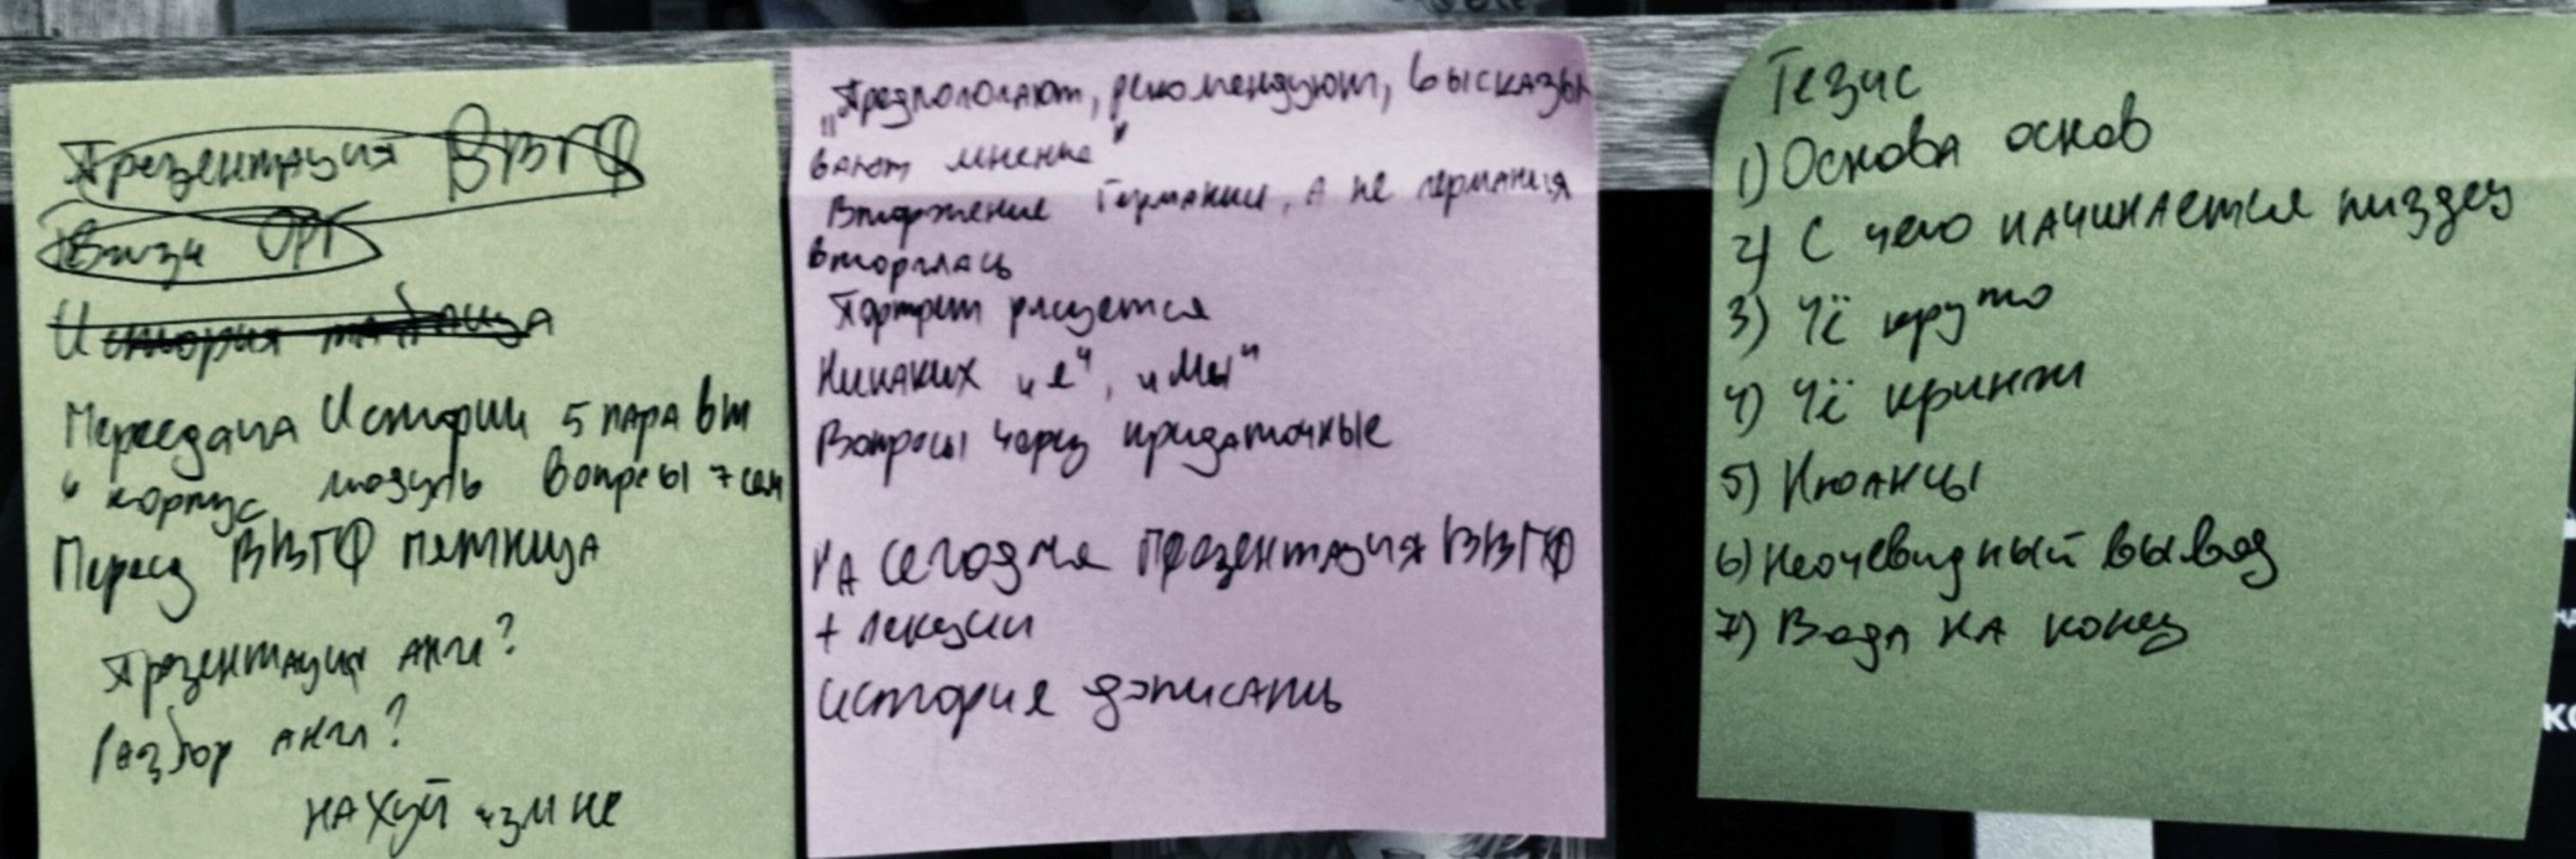 Презентация ВВГФ
Визи ОРГ
История таблица
Пересдача Истории 5 пара вт
6 корпус модуль вопросы 7 сем
Перезд ВВГФ пятница
Презентация англ?
Разбор англ?
нахуй
"Предпологают, рекомендуют, высказы
вают мнение"
Вторжение Германии, а не германия
вторглась
Портрет рисуется
Никаких "я", "мы"
Вопросы через придаточные
На сегодня Презентация ВВГФ
+ лекции
история дописать
Тезис
1) Основа основ
2) С чего начинается пиздец
3) Чё круто
4) Чё кринж
5) Нюансы
6) Неочевидный вывод
7) Вода на конец